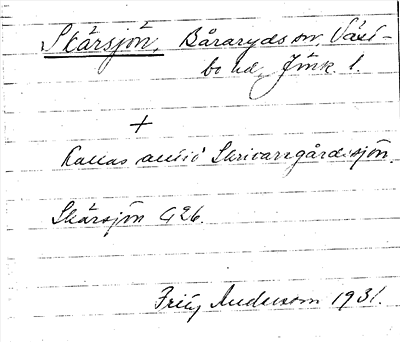 Skärsjön, Båraryds sn, Väst-
bo hd, Jönk. l.
+
Kallas även Skrivaregårdssjön.
Skärsjön G26.
Fritz Anderson 1931.